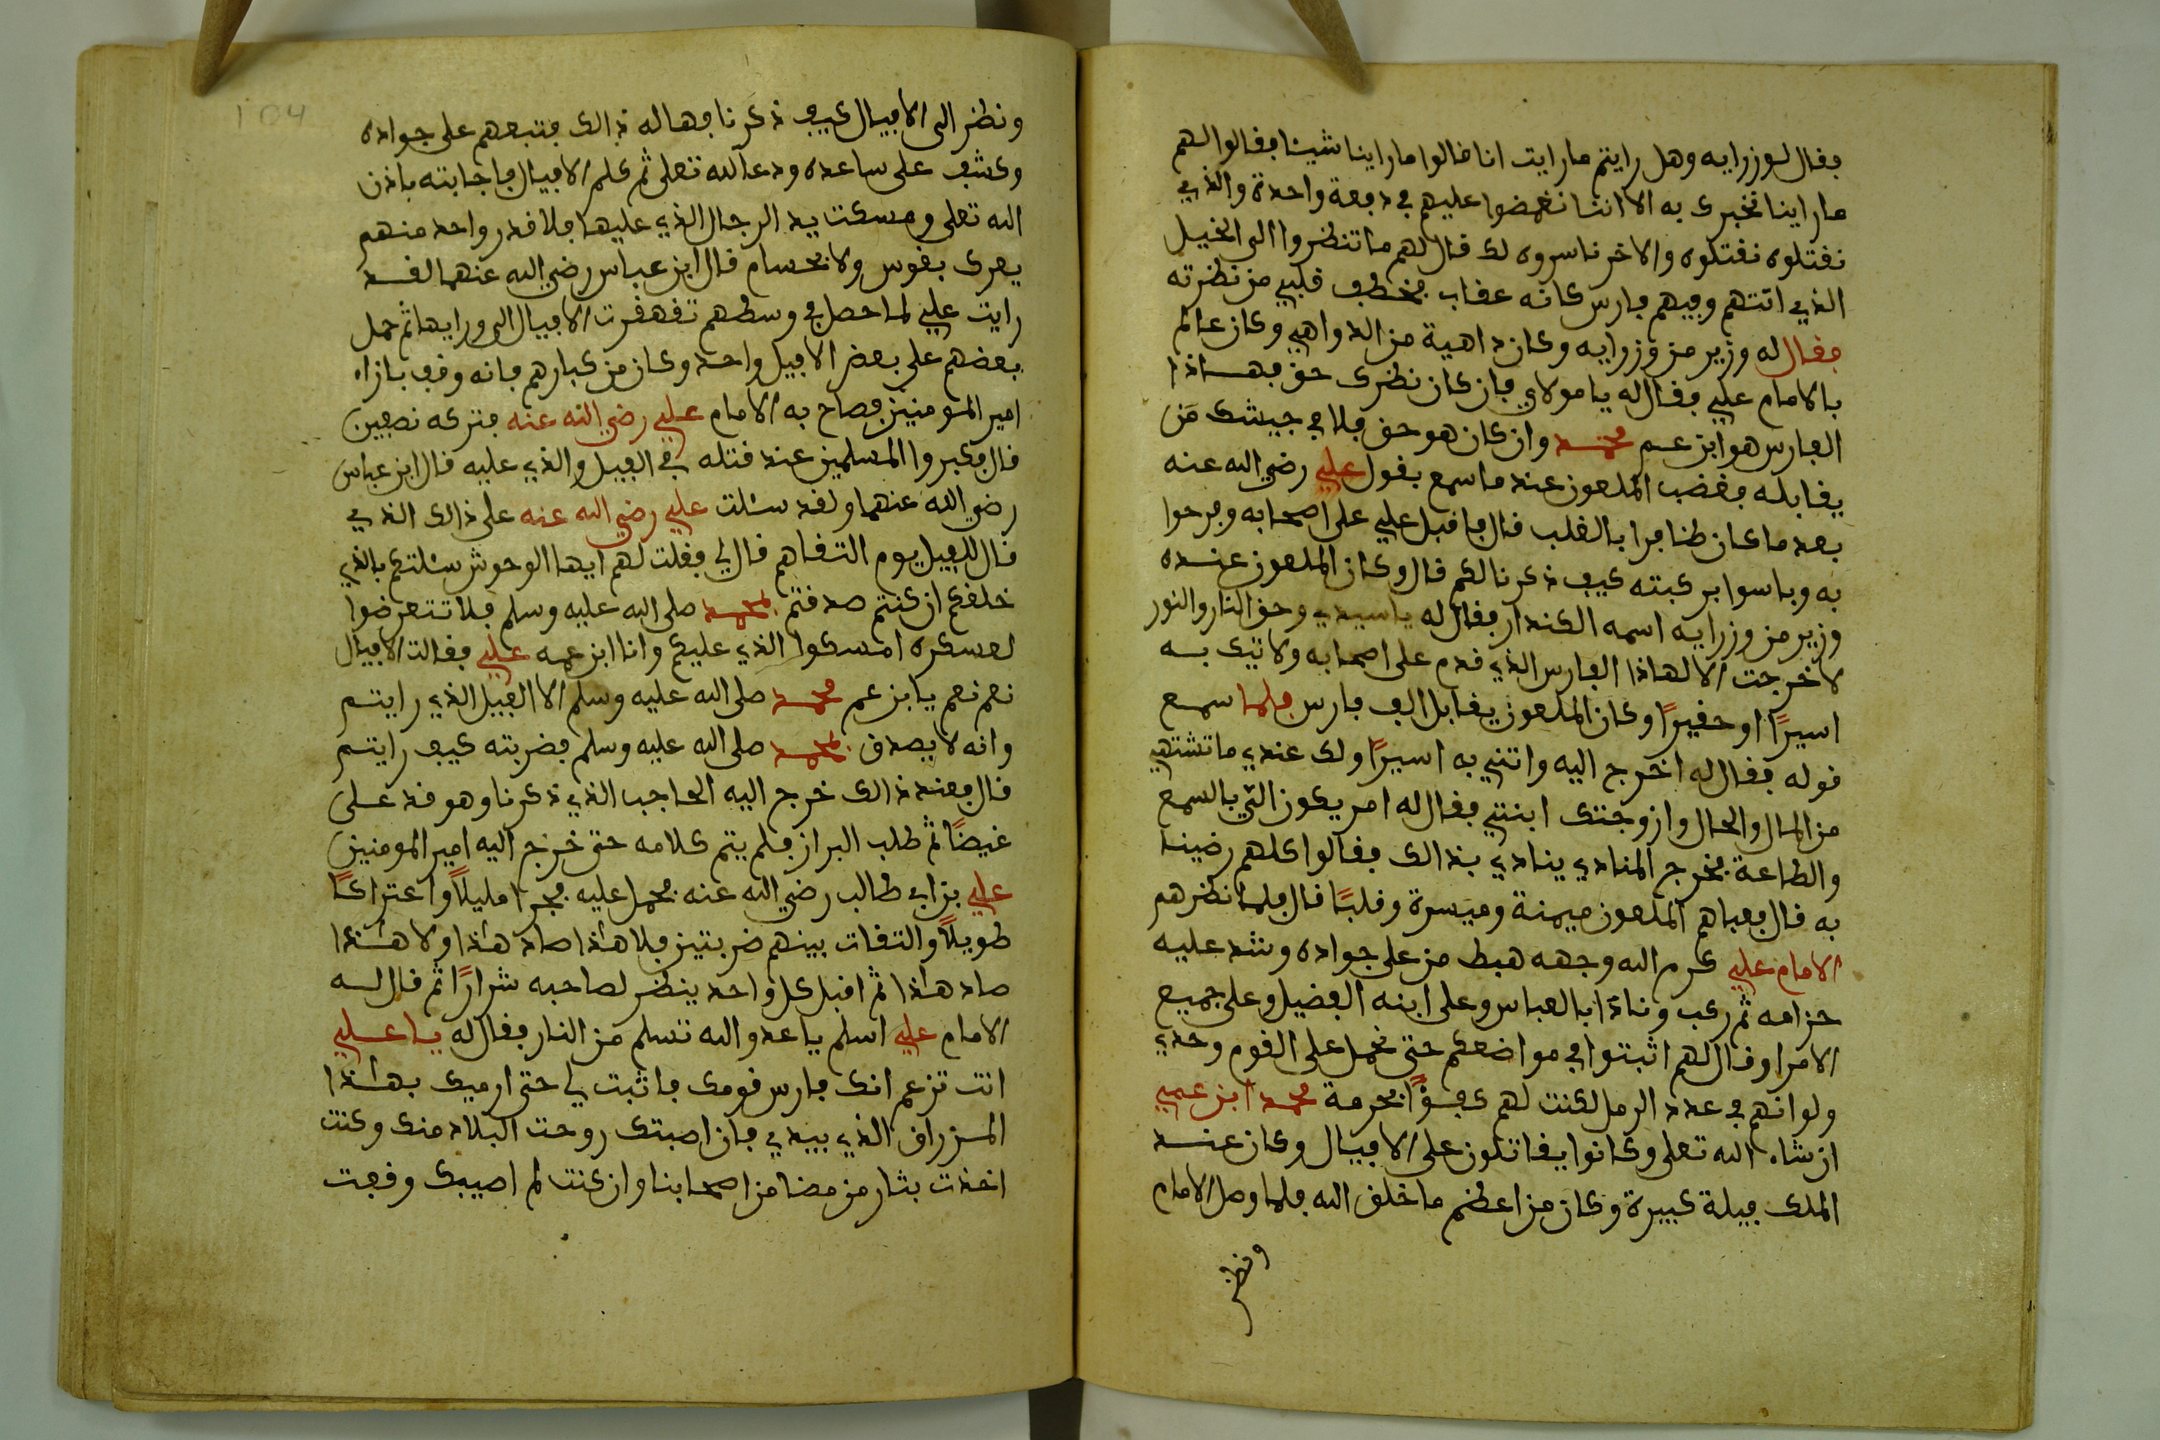 فقال لوزرايه وهل رايتم ما رايت انا فالوا ما راينا شينا فقالوا لهم
ما راينا نخبرك به الا اننا نغمضوا عليهم في دفعة واحدة والذي
نقتلوه نقتلوه والاخر ناسروه لك قال لهم ما تنظروا الى الخيل
الذي اتتهم وفيهم فارس كانه عقاب فخطف قلبي من نظرته
فقال له وزير من وزرايه وكان داهية من الدواهي وكان عالم
بالامام علي فقال له يا مولاي فان كان نظرك حق فهاذا
الفارس هو ابن عم محمد وان كان هو حق فلا في جيشك من
يقابله فغضب الملعون عند ما سمع بقول علي رضي الله عنه
بعد ما كان طنافرا بالقلب قال فاقبل علي على اصحابه وفرحوا
به وباسوا بركبته كيف ذكرنا لكم قال وكان الملعون عنده
وزير من وزرايه اسمه الكندار فقال له يا سيدي وحق النار والنور
لاخرجت الا لهاذا الفارس الذي قدم على اصحابه ولاتيك به
اسيرًا او حقيرًا وكان الملعون يقابل الف فارس فلما سمع
قوله فقال له اخرج اليه واتني به اسيرًا ولك عندي ما تشتهي
من المال والحال وازوجتك ابنتي فقال له امر يكون اتي بالسمع
والطاعة فخرج المنادي ينادي بذالك فقالوا كلهم رضينا
به قال فعباهم الملعون ميمنة وميسرة وقلبًا قال فلما نظرهم
الامام علي كرم الله وجهه هبط من على جواده وشد عليه
حزامه ثم ركب ونادا بالعباس وعلى ابنه الفضيل وعلى جميع
الامرا وقال لهم اثبتوا في مواضعكم حتى نحمل على القوم وحدي
ولو انهم في عدد الرمل لكنت لهم كفوًا بحرمة محمد ابن عمي
ان شاء الله تعلى وكانوا يقاتلون على الافيال وكان عند
الملك فيلة كبيرة وكان من اعظم ما خلق الله فلما وصل الامام
ونظر
ونظر الى الافيال كيف ذكرنا فهاله ذالك فتبعهم على جواده
وكشف على ساعده ودعا الله تعلى ثم كلم الافيال فاجابته باذن
الله تعلى ومسكت يد الرجال الذي عليها فلا قدر واحد منهم
يعرك بقوس ولا بحسام قال ابن عباس رضي الله عنهما لقد
رايت علي لما حصل في وسطهم تقهقرت الافيال الى ورايها ثم حمل
بعضهم على بعض الا فيل واحد وكان من كبارهم فانه وقف بازاء
امير المومنين فصاح به الامام علي رضي الله عنه فتركه نصفين
قال فكبروا المسلمين عند قتله في الفيل والذي عليه قال ابن عباس
رضي الله عنهما ولقد سئلت علي رضي الله عنه على ذالك الذي
قال للفيل يوم التقاهم قال لي فقلت لهم ايها الوحوش سئلتكم بالذي
خلقكم ان كنتم صدقتم بمحمد صلى الله عليه وسلم فلا تتعرضوا
لعسكره امسكوا الذي عليكم وانا ابن عمه علي فقالت الافيال
نعم نعم يا بن عم محمد صلى الله عليه وسلم الا الفيل الذي رايتم
وانه لا يصدق بمحمد صلى الله عليه وسلم فضربته كيف رايتم
قال فعند ذالك خرج اليه الحاجب الذي ذكرنا وهو قد على
غيضًا ثم طلب البراز فلم يتم كلامه حتى خرج اليه امير المومنين
علي بن ابي طالب رضي الله عنه فحمل عليه فجرا مليلًا واعتراكًا
طويلًا والتقات بينهم ضربتين فلا هاذا صاد هاذا ولا هاذا
صاد هاذا ثم اقبل كل واحد ينظر لصاحبه شرارًا ثم قال له
الامام علي اسلم يا عدو الله تسلم من النار فقال له يا علي
انت تزعم انك فارس قومك فاثبت لي حتى ارميك بهاذا
المزراق الذي بيدي فان اصبتك روحت البلاد منك وكنت
اخذت بثار من مضا من اصحابنا وان كنت لم اصيبك وقعت